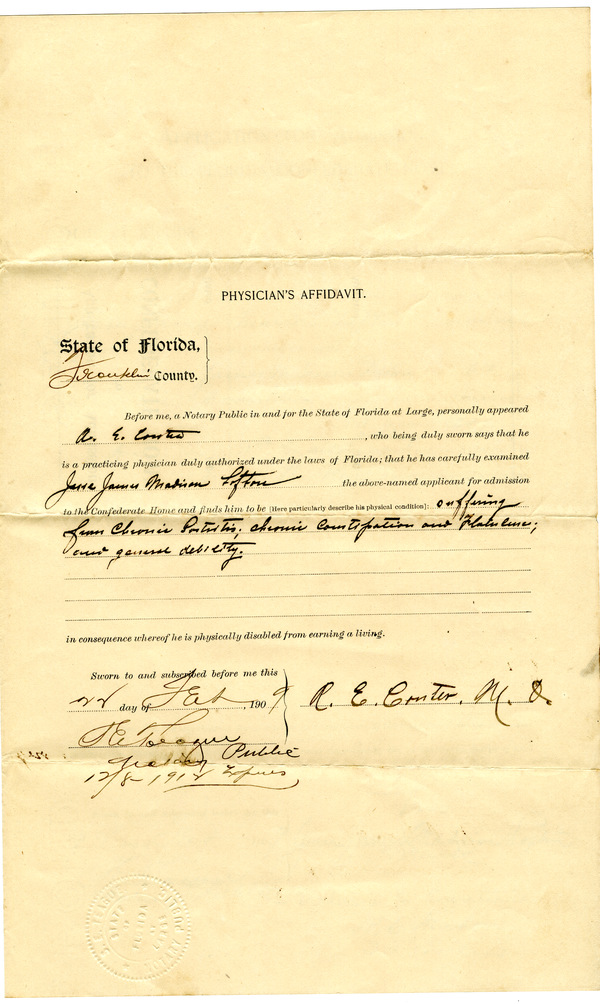 PHYSICIAN'S AFFIDAVIT.
State of Florida,
Franklin County.
Before me, a Notary Public in and for the State of Florida at Large, personally appeared
R. E. Conter, who being duly sworn says that he
is a practicing physician duly authorized under the laws of Florida; that he has carefully examined
James Madison Lofton the above-named applicant for admission
to the Confederate Home and finds him to be [Here particularly describe his physical condition]: suffering
from Chronic chronic Constipation and
and general debility.
in consequence whereof he is physically disabled from earning a living.
Sworn to and subscribed before me this
22 day of Feb, 1909
R. E. Conter, M. D.
Notary Public
12/8-1912 Expires